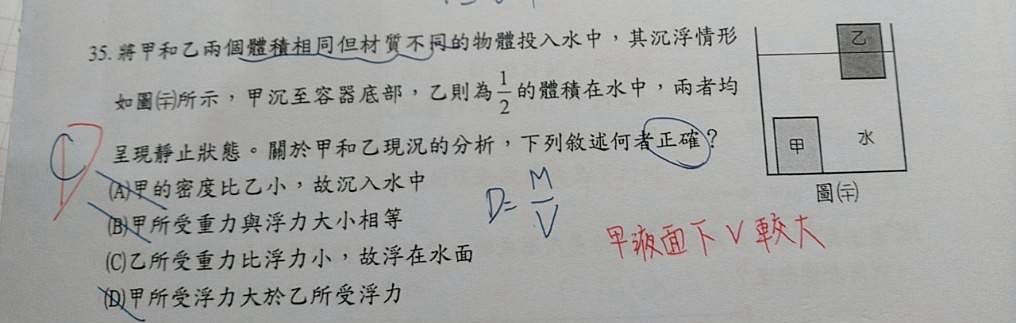 35. 將甲和乙兩個體積相同但材質不同的物體投入水中,其沉浮情形
如圖(二十)所示,甲沉至容器底部,乙則為1/2的體積在水中,兩者均
呈現靜止狀態。關於甲和乙現況的分析,下列敘述何者正確?
(A)甲的密度比乙小,故沉入水中
(B)甲所受重力與浮力大小相等
(C)乙所受重力比浮力小,故浮在水面
(D)甲所受浮力大於乙所受浮力
C
D
D=M/V
甲液面下V較大
乙
甲
水
圖(二十)